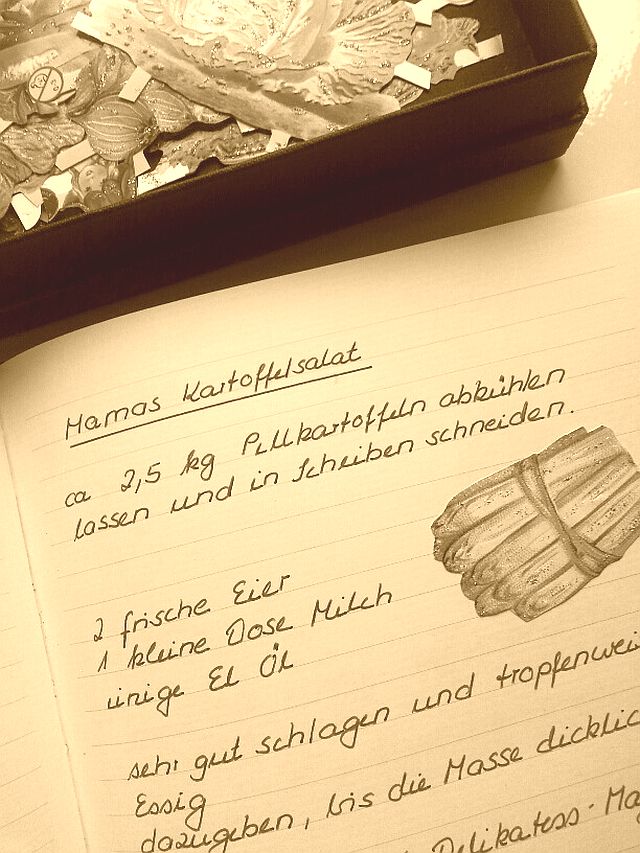 Mamas Kartoffelsalat
ca 2,5 kg Pellkartoffeln abkühlen
lassen und in Scheiben schneiden.
2 frische Eier
1 kleine Dose Milch
einige El Öl
sehr gut schlagen und tropfenwei
Essig
dazugeben, bis die Masse dicklic
Delikatess-Ma